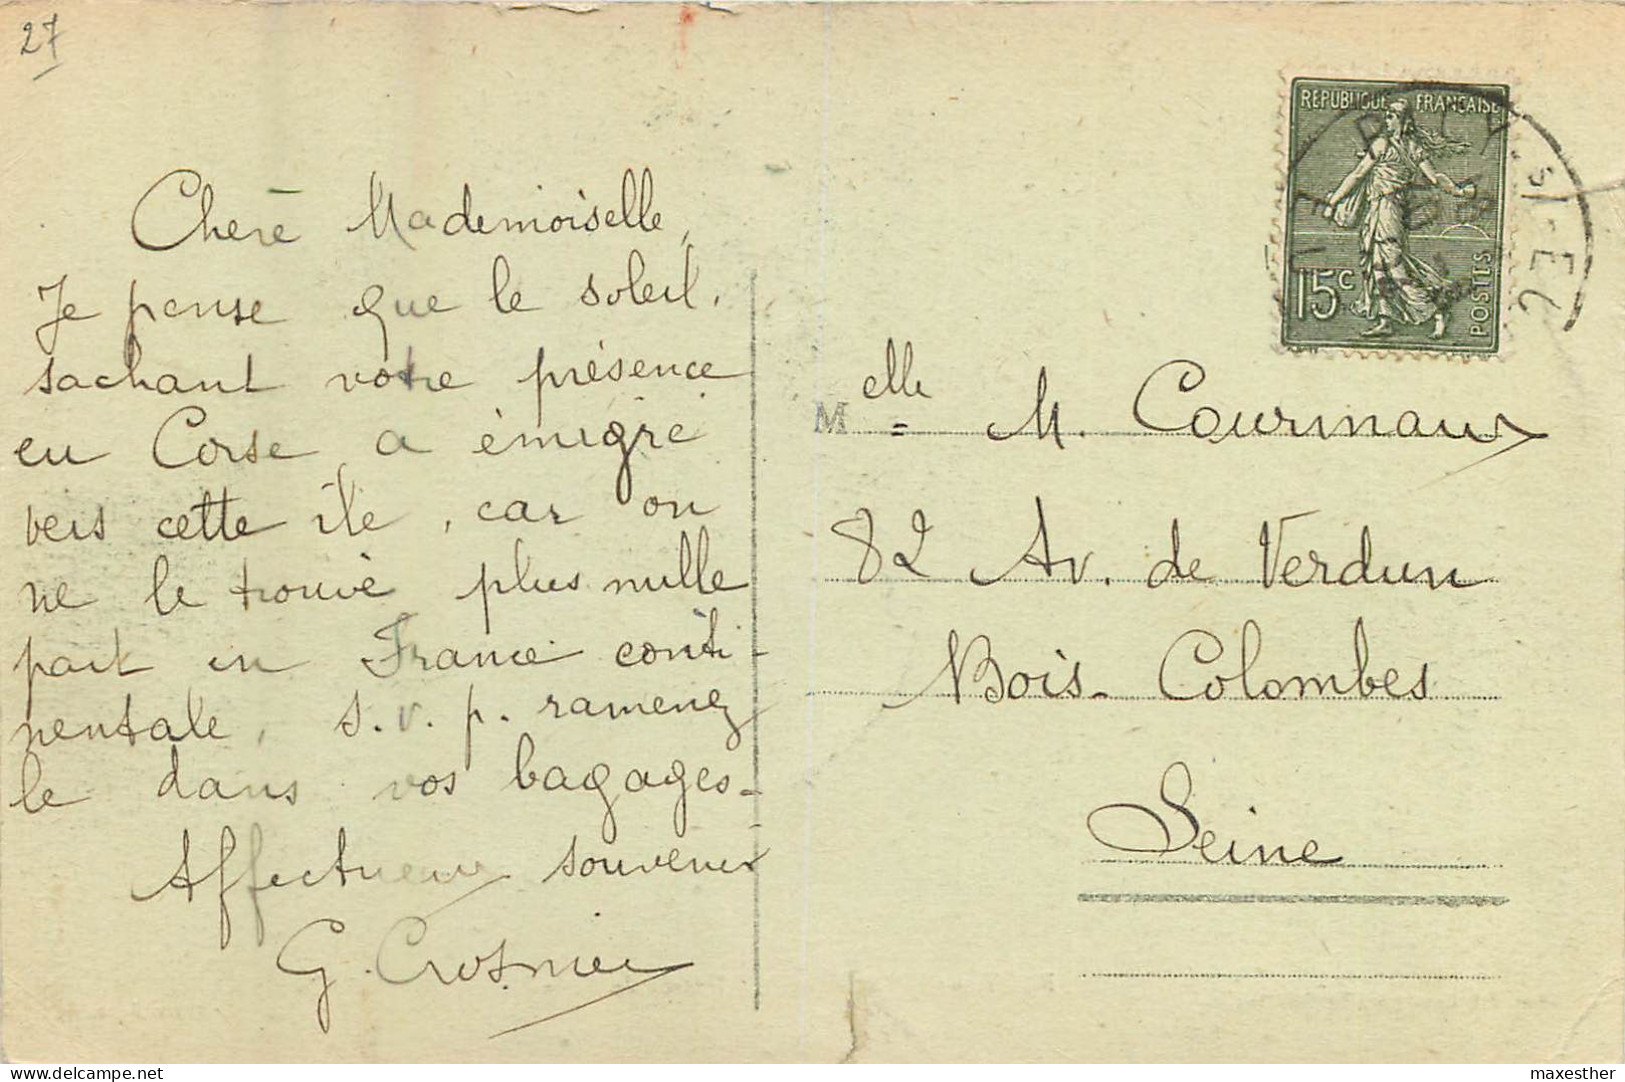 27
Chère Mademoiselle,
Je pense que le soleil,
sachant votre présence
en Corse, a émigré
vers cette île, car on
ne le trouve plus nulle
part en France conti-
nentale, s.v.p. ramenez
le dans vos bagages-
Affectueux souvenir
G. Crosnier
REPUBLIQUE FRANÇAISE
15c
POSTES
Melle M. Courmaux
82 Av. de Verdun
Bois-Colombes
Seine
Delcampe.net
maxesther